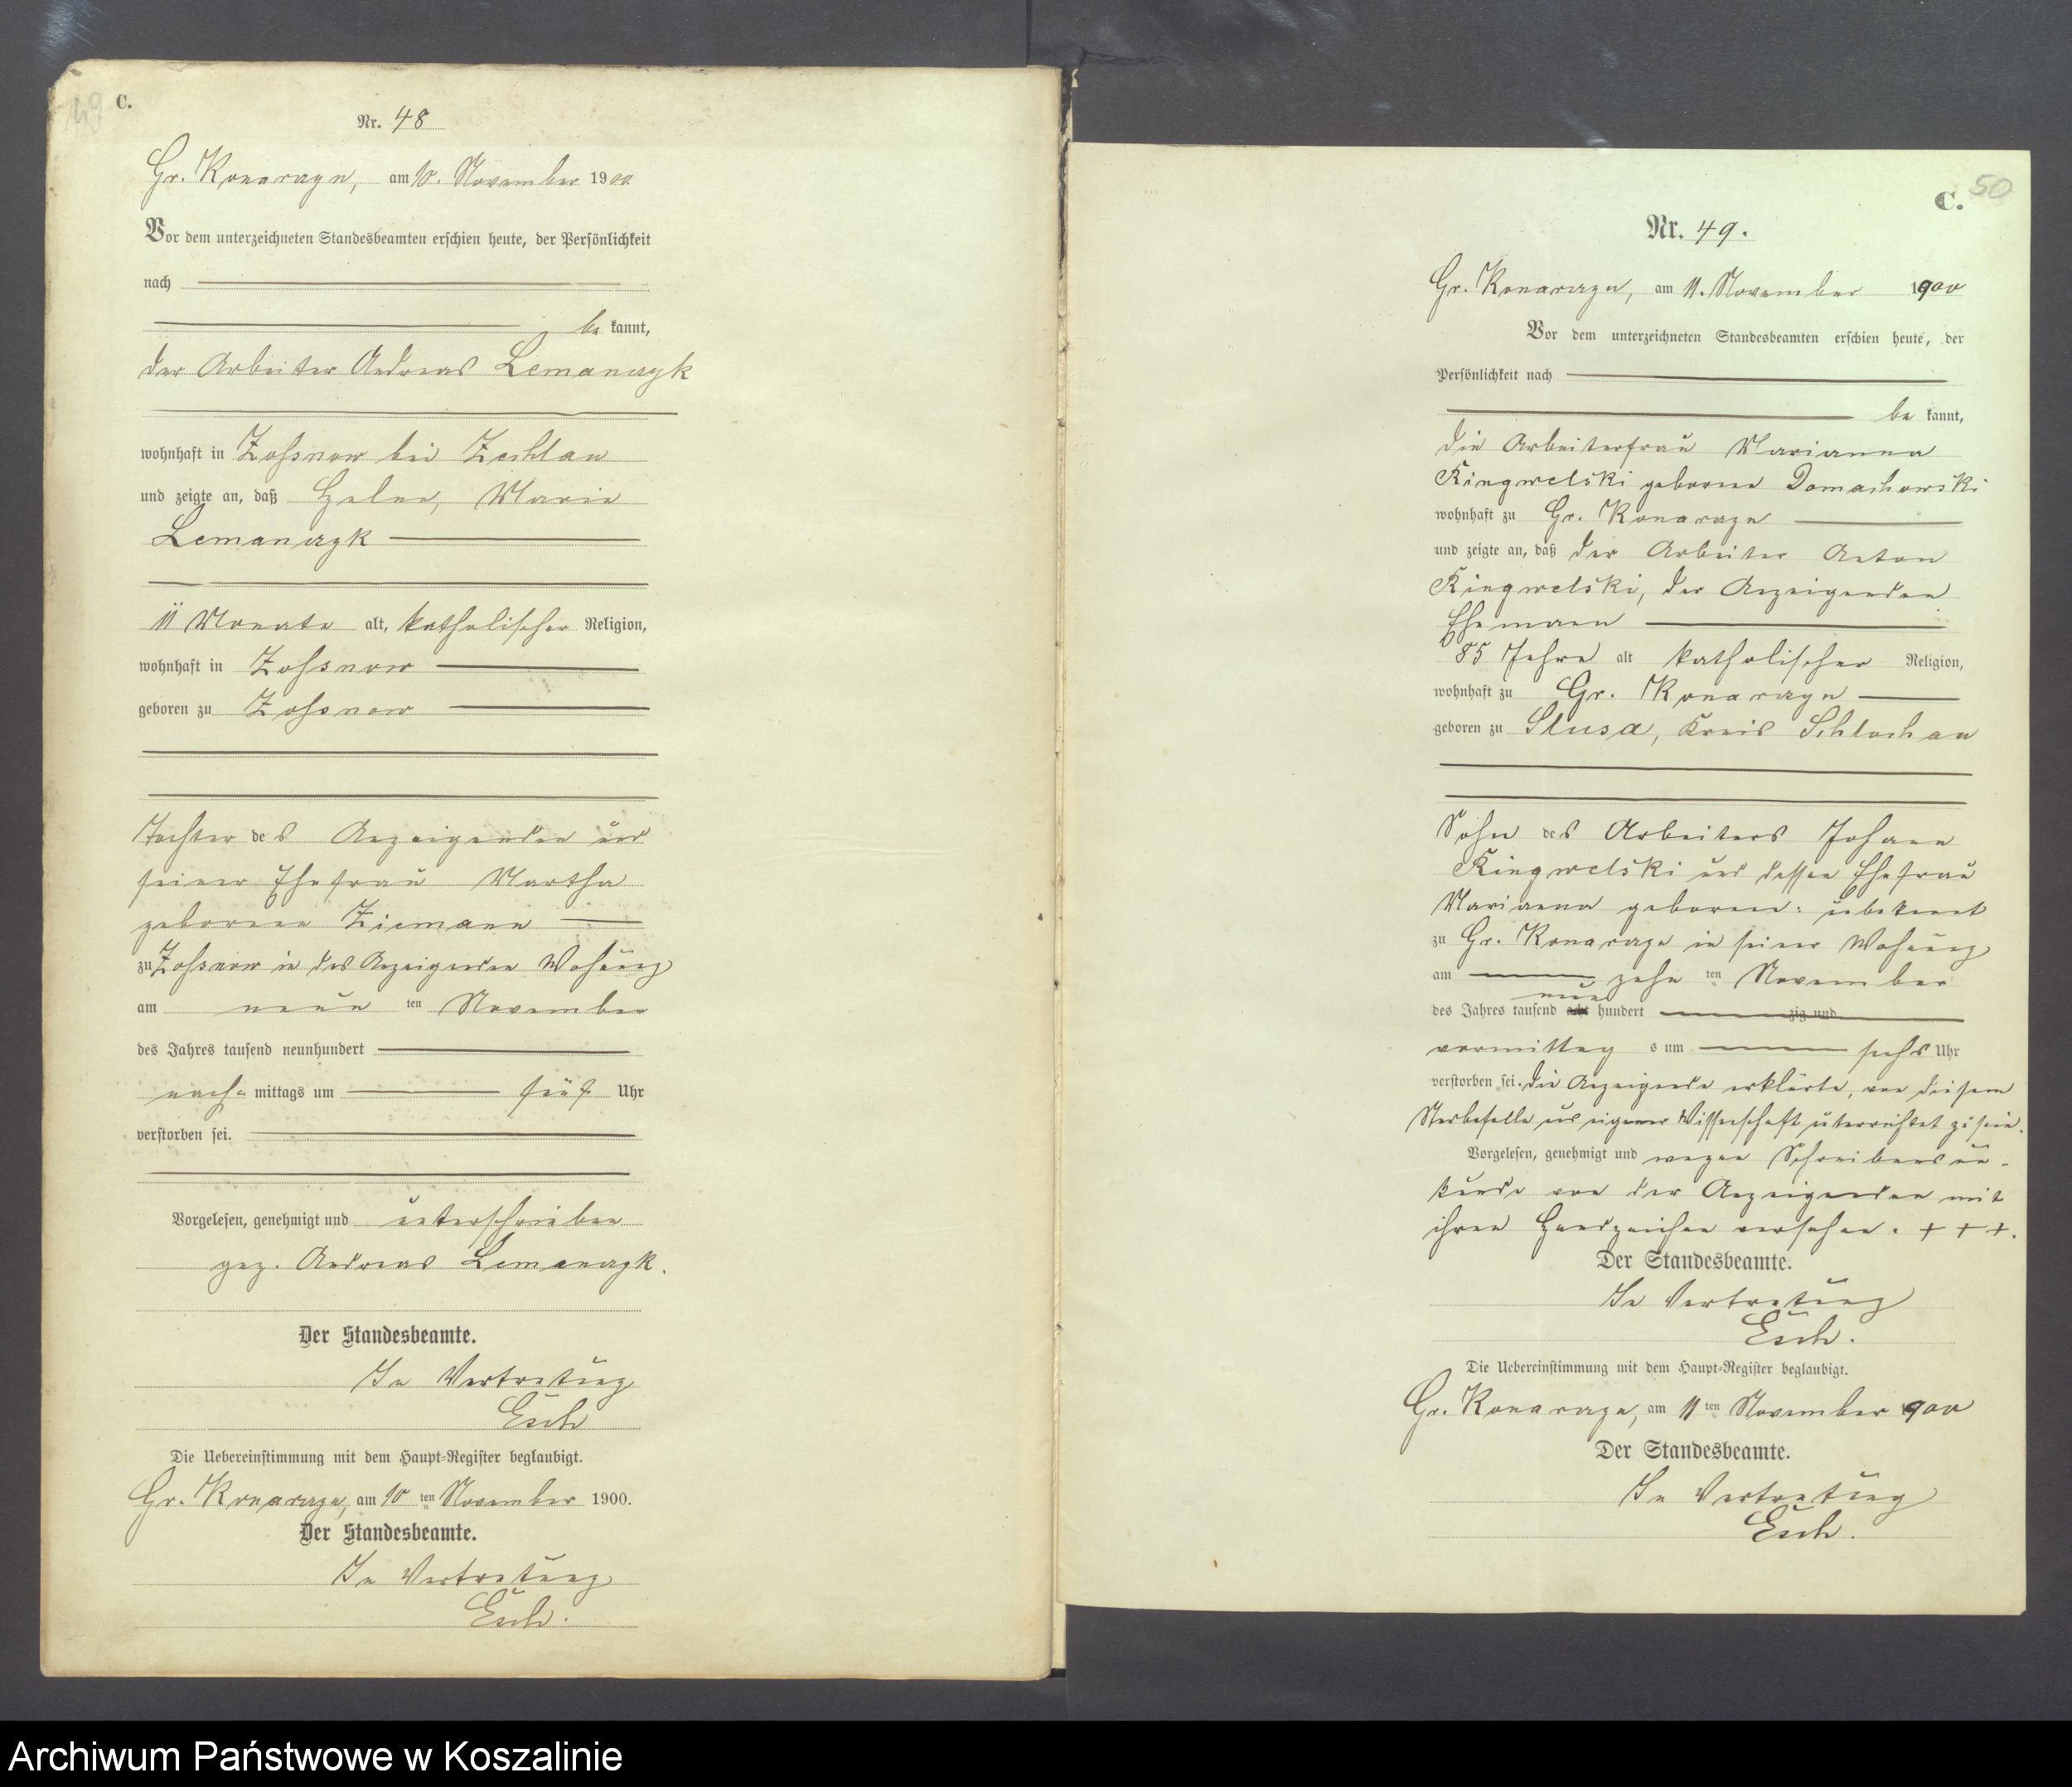 C.
49
Nr. 48
Gr. Konarzyn, am 10. November 1900
Vor dem unterzeichneten Standesbeamten erschien heute, der Persönlichkeit
nach
be kannt,
der Arbeiter Andreas Lemanczyk
wohnhaft in Zossnow bei Zechlau
und zeigte an, daß Helene, Marie
Lemanczyk
11 Monate alt, katholischer Religion,
wohnhaft in Zossnow
geboren zu Zossnow
Tochter des Anzeigenden und
seiner Ehefrau Martha
geborene Ziemann
zu Zossnow in des Anzeigenden Wohnung
am neun ten November
des Jahres tausend neunhundert
nach mittags um fünf Uhr
verstorben sei.
Vorgelesen, genehmigt und unterschrieben
gez. Andreas Lemanczyk.
Der Standesbeamte.
In Vertretung
Esch
Die Uebereinstimmung mit dem Haupt-Register beglaubigt.
Gr. Konarzyn, am 10 ten November 1900.
Der Standesbeamte.
In Vertretung
Esch.
C.
50
Nr. 49.
Gr. Konarzyn, am 11. November 1900
Vor dem unterzeichneten Standesbeamten erschien heute, der
Persönlichkeit nach
be kannt,
die Arbeiterfrau Marianna
Kingwelski geborene Domachowski
wohnhaft zu Gr. Konarzyn
und zeigte an, daß der Arbeiter Anton
Kingwelski, der Anzeigenden
Ehemann
85 Jahre alt katholischer Religion,
wohnhaft zu Gr. Konarzyn
geboren zu Slusa, Kreis Schlochau
Sohn des Arbeiters Johann
Kingwelski und dessen Ehefrau
Marianna geborene: unbekannt
zu Gr. Konarzyn in seiner Wohnung
am zehn ten November
neun
des Jahres tausend acht hundert zig und
vormittag s um sechs Uhr
verstorben sei. Die Anzeigende erklärte, von diesem
Sterbefalle aus eigener Wissenschaft unterrichtet zu sein.
Vorgelesen, genehmigt und wegen Schreibensun-
kunde von der Anzeigenden mit
ihren Handzeichen versehen. + + +.
Der Standesbeamte.
In Vertretung
Esch.
Die Uebereinstimmung mit dem Haupt-Register beglaubigt.
Gr. Konarzyn, am 11 ten November 1900
Der Standesbeamte.
In Vertretung
Esch.
Archiwum Państwowe w Koszalinie